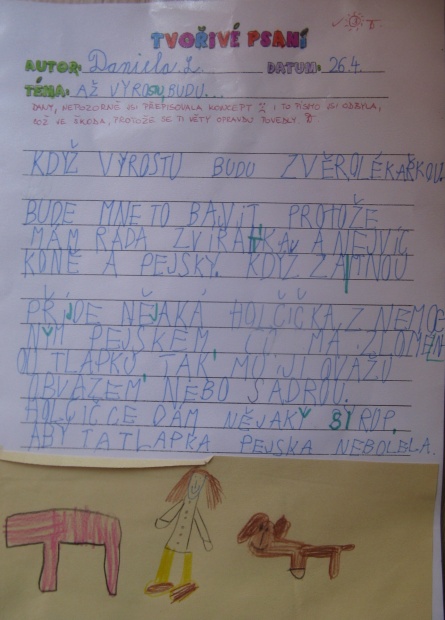 TVOŘIVÉ PSANÍ
AUTOR: Daniela L. DATUM: 26.4.
TÉMA: AŽ VYROSTU, BUDU...
DANY, NEPOZORNĚ JSI PŘEPISOVALA KONCEPT I TO PÍSMO JSI ODBYLA,
COŽ JE ŠKODA, PROTOŽE SE TI VĚTY OPRAVDU POVEDLY.
KDYŽ VYROSTU BUDU ZVĚROLÉKAŘKOU.
BUDE MNE TO BAVIT PROTOŽE
MÁM RÁDA ZVÍŘÁTKA, A NEJVÍC
KONĚ A PEJSKY. KDYŽ ZA MNOU
PŘIJDE NĚJAKÁ HOLČIČKA Z NEMOC
NÝM PEJSKEM, CO MÁ ZLOMEN
OU TLAPKU, TAK MU JI OVÁŽU
OBVAZEM NEBO SÁDROU.
HOLČIČCE DÁM NĚJAKÝ SIROP,
ABY TA TLAPKA PEJSKA NEBOLELA.